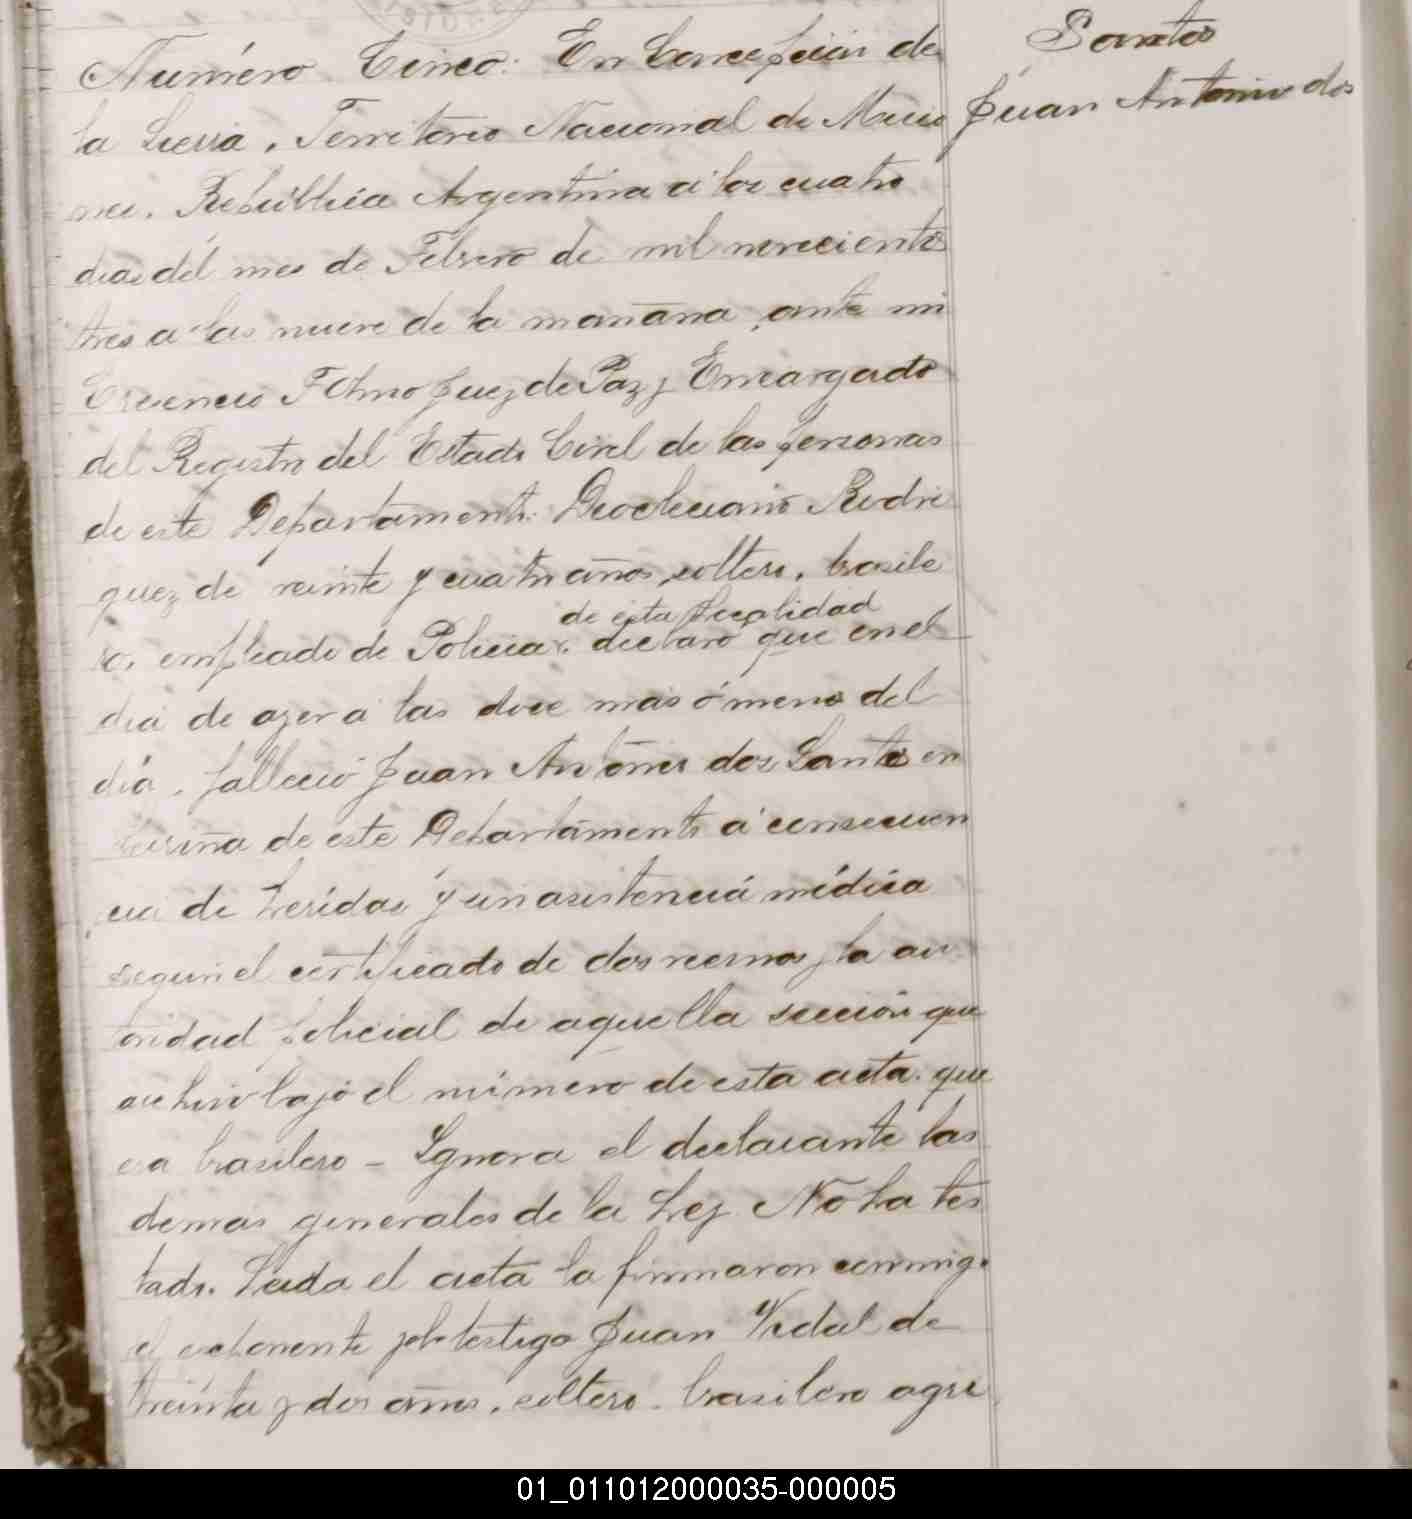 Santos
Juan Antonio dos
Número Cinco: En Concepción de
la Sierra, Territorio Nacional de Misio
nes, República Argentina a los cuatro
dias del mes de Febrero de mil novecientos
tres a las nueve de la mañana, ante mi
Juez de Paz y Encargado
del Registro del Estado Civil de las personas
de este Departamento: Diocleciano Rodri
guez de veinte y cuatro años, soltero, brasile
ro, empleado de Policia de esta localidad declaró que en el
dia de ayer a las doce mas ó menos del
día, falleció Juan Antonio dos Santos en
de este Departamento á consecuen
cia de heridas y sin asistencia médica
segun el certificado de dos vecinos y la au
toridad policial de aquella sección que
archivo bajo el número de esta acta. que
era brasilero - Ignora el declarante las
demas generales de la Ley No ha tes
tado. Leida el acta la firmaron conmigo
el exponente y el testigo Juan Vidal de
treinta y dos años, soltero, brasilero agri
01_011012000035-000005